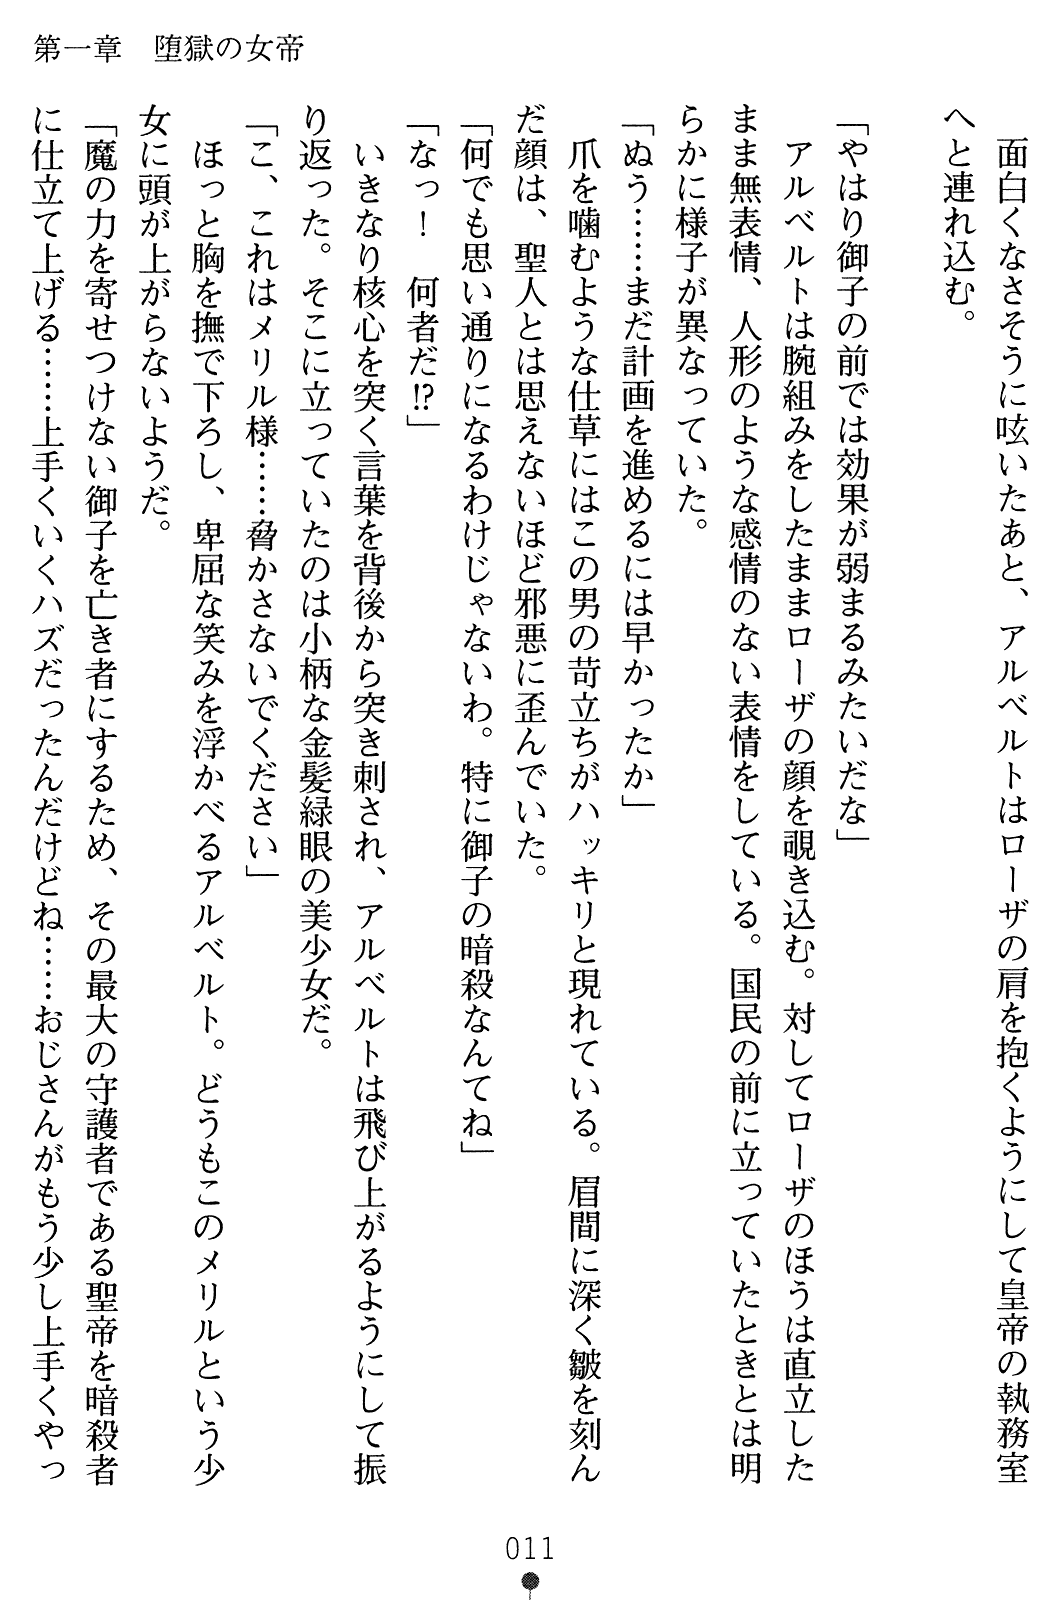 第一章　堕獄の女帝
　面白くなさそうに呟いたあと、アルベルトはローザの肩を抱くようにして皇帝の執務室
へと連れ込む。
「やはり御子の前では効果が弱まるみたいだな」
　アルベルトは腕組みをしたままローザの顔を覗き込む。対してローザのほうは直立した
まま無表情、人形のような感情のない表情をしている。国民の前に立っていたときとは明
らかに様子が異なっていた。
「ぬう……まだ計画を進めるには早かったか」
　爪を噛むような仕草にはこの男の苛立ちがハッキリと現れている。眉間に深く皺を刻ん
だ顔は、聖人とは思えないほど邪悪に歪んでいた。
「何でも思い通りになるわけじゃないわ。特に御子の暗殺なんてね」
「なっ！　何者だ!?」
　いきなり核心を突く言葉を背後から突き刺され、アルベルトは飛び上がるようにして振
り返った。そこに立っていたのは小柄な金髪緑眼の美少女だ。
「こ、これはメリル様……脅かさないでください」
　ほっと胸を撫で下ろし、卑屈な笑みを浮かべるアルベルト。どうもこのメリルという少
女に頭が上がらないようだ。
「魔の力を寄せつけない御子を亡き者にするため、その最大の守護者である聖帝を暗殺者
に仕立て上げる……上手くいくハズだったんだけどね……おじさんがもう少し上手くやっ
011